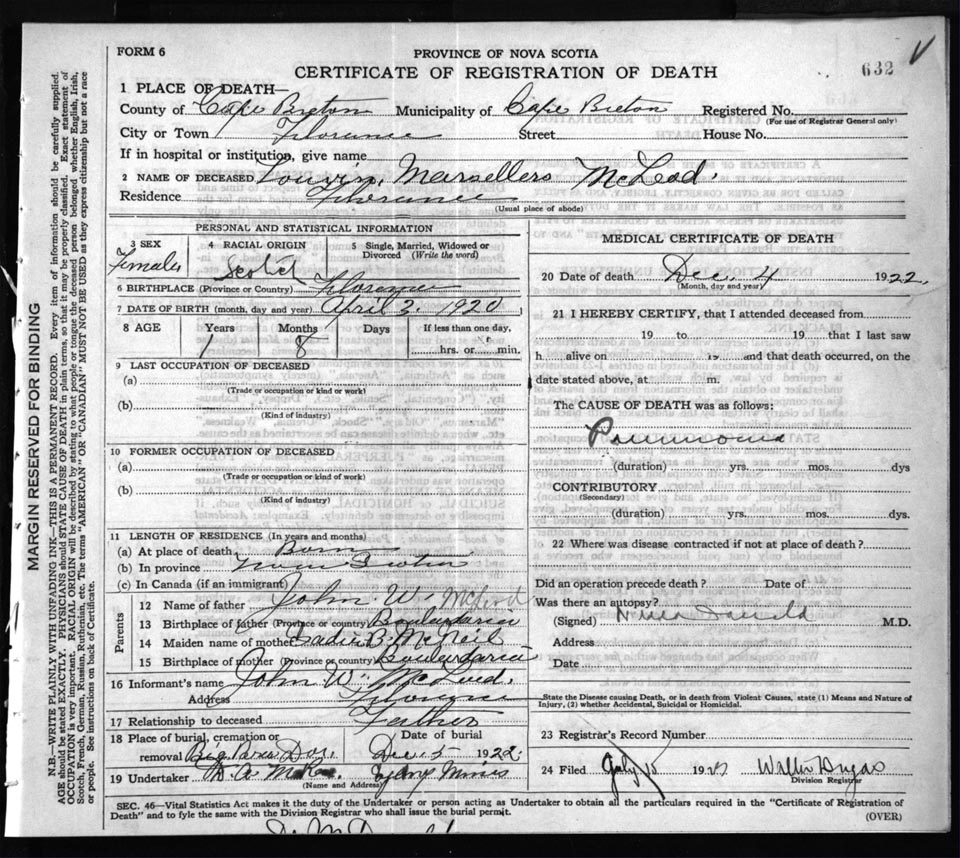 FORM 6
PROVINCE OF NOVA SCOTIA
CERTIFICATE OF REGISTRATION OF DEATH
632
1 PLACE OF DEATH—
County of Cape Breton Municipality of Cape Breton Registered No.
(For use of Registrar General only)
City or Town Florence Street House No.
If in hospital or institution, give name
2 NAME OF DECEASED Marsellers McLeod
Residence Florence
(Usual place of abode)
PERSONAL AND STATISTICAL INFORMATION
3 SEX 4 RACIAL ORIGIN 5 Single, Married, Widowed or Divorced (Write the word)
Female Scotch
6 BIRTHPLACE (Province or Country) Florence
7 DATE OF BIRTH (month, day and year) April 3, 1920
8 AGE Years Months Days If less than one day,
1 8 hrs. or min.
9 LAST OCCUPATION OF DECEASED
(a)
(Trade or occupation or kind or work)
(b)
(Kind of industry)
10 FORMER OCCUPATION OF DECEASED
(a)
(Trade or occupation or kind of work)
(b)
(Kind of industry)
11 LENGTH OF RESIDENCE (In years and months)
(a) At place of death Born
(b) In province Nova Scotia
(c) In Canada (if an immigrant)
Parents
12 Name of father John W. McLeod
13 Birthplace of father (Province or country) Boulardarie
14 Maiden name of mother Sadie B. McNeil
15 Birthplace of mother (Province or country) Boulardarie
16 Informant's name John W. McLeod.
Address Florence
17 Relationship to deceased Father
18 Place of burial, cremation or Date of burial
removal Big Bras Dor. Dec 5 1922
19 Undertaker Sydney Mines
(Name and Address)
MEDICAL CERTIFICATE OF DEATH
20 Date of death Dec. 4 1922.
(Month, day and year)
21 I HEREBY CERTIFY, that I attended deceased from
19 to 19 that I last saw
h alive on 19 and that death occurred, on the
date stated above, at m.
The CAUSE OF DEATH was as follows:
Pneumonia
(duration) yrs. mos. dys
CONTRIBUTORY
(Secondary)
(duration) yrs. mos. dys.
22 Where was disease contracted if not at place of death?
Did an operation precede death? Date of
Was there an autopsy?
(Signed) M.D.
Address
Date
State the Disease causing Death, or in death from Violent Causes, state (1) Means and Nature of
Injury, (2) whether Accidental, Suicidal or Homicidal.
23 Registrar's Record Number
24 Filed July 15 19
Division Registrar
SEC. 46—Vital Statistics Act makes it the duty of the Undertaker or person acting as Undertaker to obtain all the particulars required in the "Certificate of Registration of
Death" and to fyle the same with the Division Registrar who shall issue the burial permit.
(OVER)
MARGIN RESERVED FOR BINDING
N.B.—WRITE PLAINLY WITH UNFADING INK—THIS IS A PERMANENT RECORD. Every item of information should be carefully supplied.
AGE should be stated EXACTLY. PHYSICIANS should STATE CAUSE OF DEATH in plain terms, so that it may be properly classified. Exact statement of
OCCUPATION is very important. RACIAL ORIGIN will be described by stating to what people or tongue the deceased person belonged whether English, Irish,
Scotch, French, German, Russian, Ruthenian, etc. The terms "AMERICAN" OR "CANADIAN" MUST NOT BE USED as they express citizenship but not a race
or people. See instructions on back of Certificate.